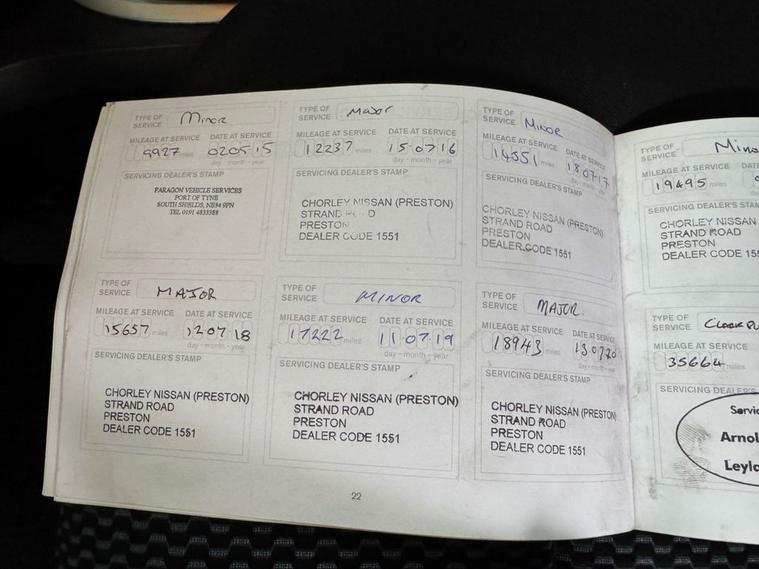 TYPE OF SERVICE Minor
MILEAGE AT SERVICE DATE AT SERVICE
9927 miles 02 05 15
day - month - year
SERVICING DEALER'S STAMP
PARAGON VEHICLE SERVICES
PORT OF TYNE
SOUTH SHIELDS, NE34 9PN
TEL 0191 4833388
TYPE OF SERVICE Major
MILEAGE AT SERVICE DATE AT SERVICE
12237 miles 15.07.16
day - month - year
SERVICING DEALER'S STAMP
CHORLEY NISSAN (PRESTON)
STRAND ROAD
PRESTON
DEALER CODE 1551
TYPE OF SERVICE MINOR
MILEAGE AT SERVICE DATE AT SERVICE
14551 miles 18.07.17
day - month - year
SERVICING DEALER'S STAMP
CHORLEY NISSAN (PRESTON)
STRAND ROAD
PRESTON
DEALER CODE 1551
TYPE OF SERVICE MAJOR
MILEAGE AT SERVICE DATE AT SERVICE
15657 miles 12.07.18
day - month - year
SERVICING DEALER'S STAMP
CHORLEY NISSAN (PRESTON)
STRAND ROAD
PRESTON
DEALER CODE 1551
TYPE OF SERVICE MINOR
MILEAGE AT SERVICE DATE AT SERVICE
17222 miles 11.07.19
day - month - year
SERVICING DEALER'S STAMP
CHORLEY NISSAN (PRESTON)
STRAND ROAD
PRESTON
DEALER CODE 1551
TYPE OF SERVICE MAJOR
MILEAGE AT SERVICE DATE AT SERVICE
18943 miles 13.07.20
day - month - year
SERVICING DEALER'S STAMP
CHORLEY NISSAN (PRESTON)
STRAND ROAD
PRESTON
DEALER CODE 1551
22
TYPE OF SERVICE Mino
MILEAGE AT SERVICE DATE A
19495 miles
SERVICING DEALER'S STAMP
CHORLEY NISSAN
STRAND ROAD
PRESTON
DEALER CODE 155
TYPE OF SERVICE
MILEAGE AT SERVICE DATE
35664 miles
SERVICING DEALER'S
Servic
Arnol
Leyla